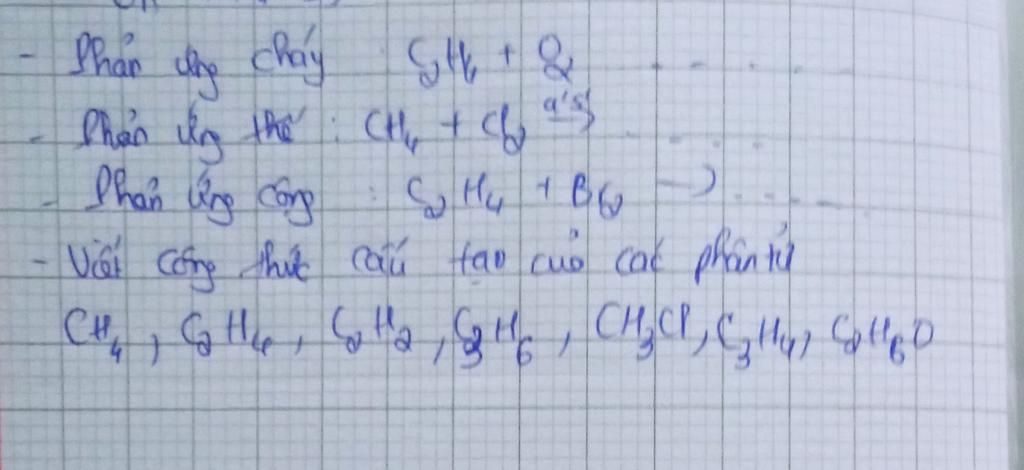 - Phản ứng cháy C2H4 + O2 . - . - .
- Phản ứng thế : CH4 + Cl2 a's' . - . .
- Phản ứng cộng : C2H4 + Br2 → . . . .
- Viết công thức cấu tạo của các phân tử
CH4, C2H4, C2H2, C3H6, CH3Cl, C3H4, C2H6O